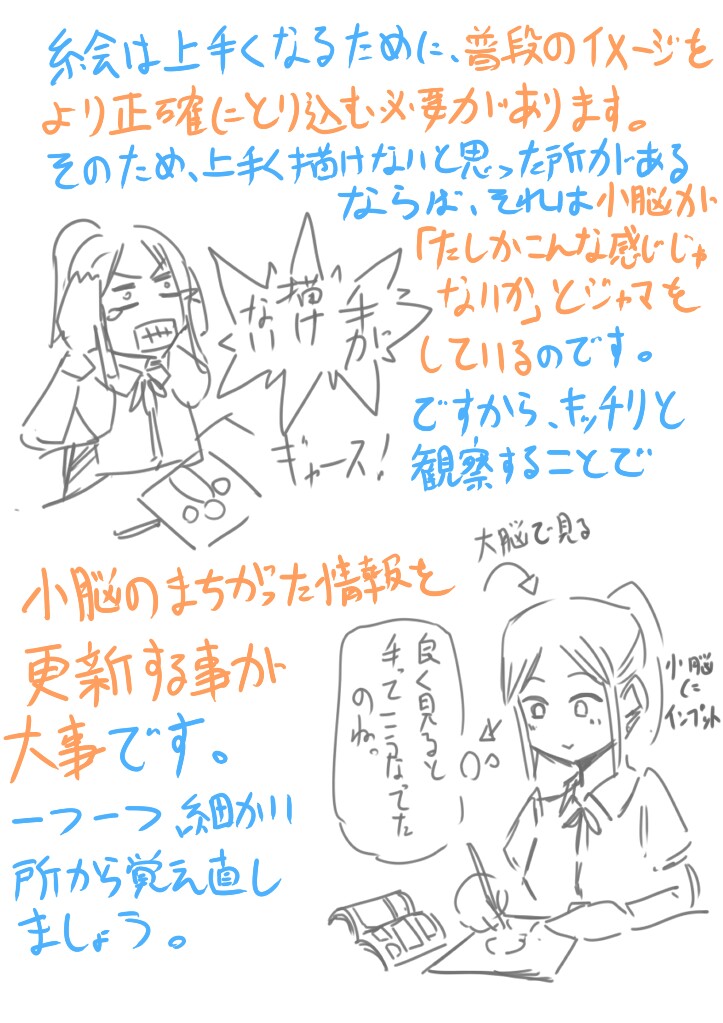 絵会は上手くなるために、普段のイメージを
より正確にとり込む必要があります。
そのため、上手く描けないと思った所がある
ならば、それは小脳が
「たしかこんな感じじゃ
ないか」とジャマを
しているのです。
ですから、キッチリと
観察することで
手が
描け
ない
ギャース!
小脳のまちがった情報を
更新する事が
大事です。
一つ一つ、細かい
所から覚え直し
ましょう。
大脳で見る
小脳
に
インプット
良く見ると
手ってこうなってた
のねっ